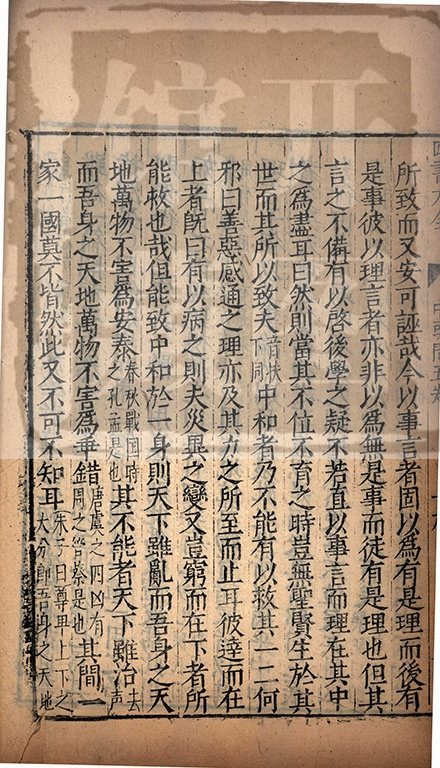 所致而又安可誣哉今以事言者固以為有是理而後有
是事彼以理言者亦非以為無是事而徒有是理也但其
言之不備有以啓後學之疑不若直以事言而理在其中
之為盡耳曰然則當其不位不育之時豈無聖賢生於其
世而其所以致夫音扶下同中和者乃不能有以救其一二何
邪曰善惡感通之理亦及其力之所至而止耳彼達而在
上者旣曰有以病之則夫災異之變又豈窮而在下者所
能救也哉但能致中和於一身則天下雖亂而吾身之天
地萬物不害為安泰春秋戰國時之孔孟是也其不能者天下雖治去聲
而吾身之天地萬物不害為乖錯唐虞之四凶有周之管蔡是也其間一
家一國莫不皆然此又不可不知耳朱子曰尊卑上下之大分即吾身之天地